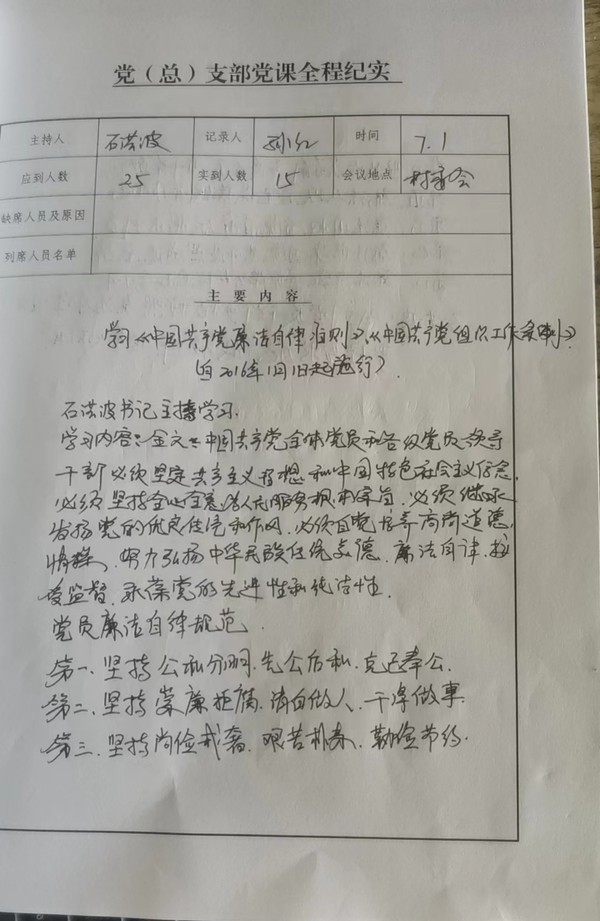 党（总）支部党课全程纪实
主持人 石洪波 记录人 孙红 时间 7.1
应到人数 25 实到人数 15 会议地点 村委会
缺席人员及原因
列席人员名单
主要内容
学习《中国共产党廉洁自律准则》《中国共产党组织工作条例》
（自2016年1月1日起施行）
石洪波书记主持学习.
学习内容：全文：中国共产党全体党员和各级党员领导
干部必须坚定共产主义理想和中国特色社会主义信念,
必须坚持全心全意为人民服务根本宗旨、必须继承
发扬党的优良传统和作风、必须自觉培养高尚道德
情操、努力弘扬中华民族传统美德、廉洁自律、接
受监督、永葆党的先进性和纯洁性.
党员廉洁自律规范.
第一、坚持公私分明、先公后私、克己奉公.
第二、坚持崇廉拒腐、清白做人、干净做事.
第三、坚持尚俭戒奢、艰苦朴素、勤俭节约.